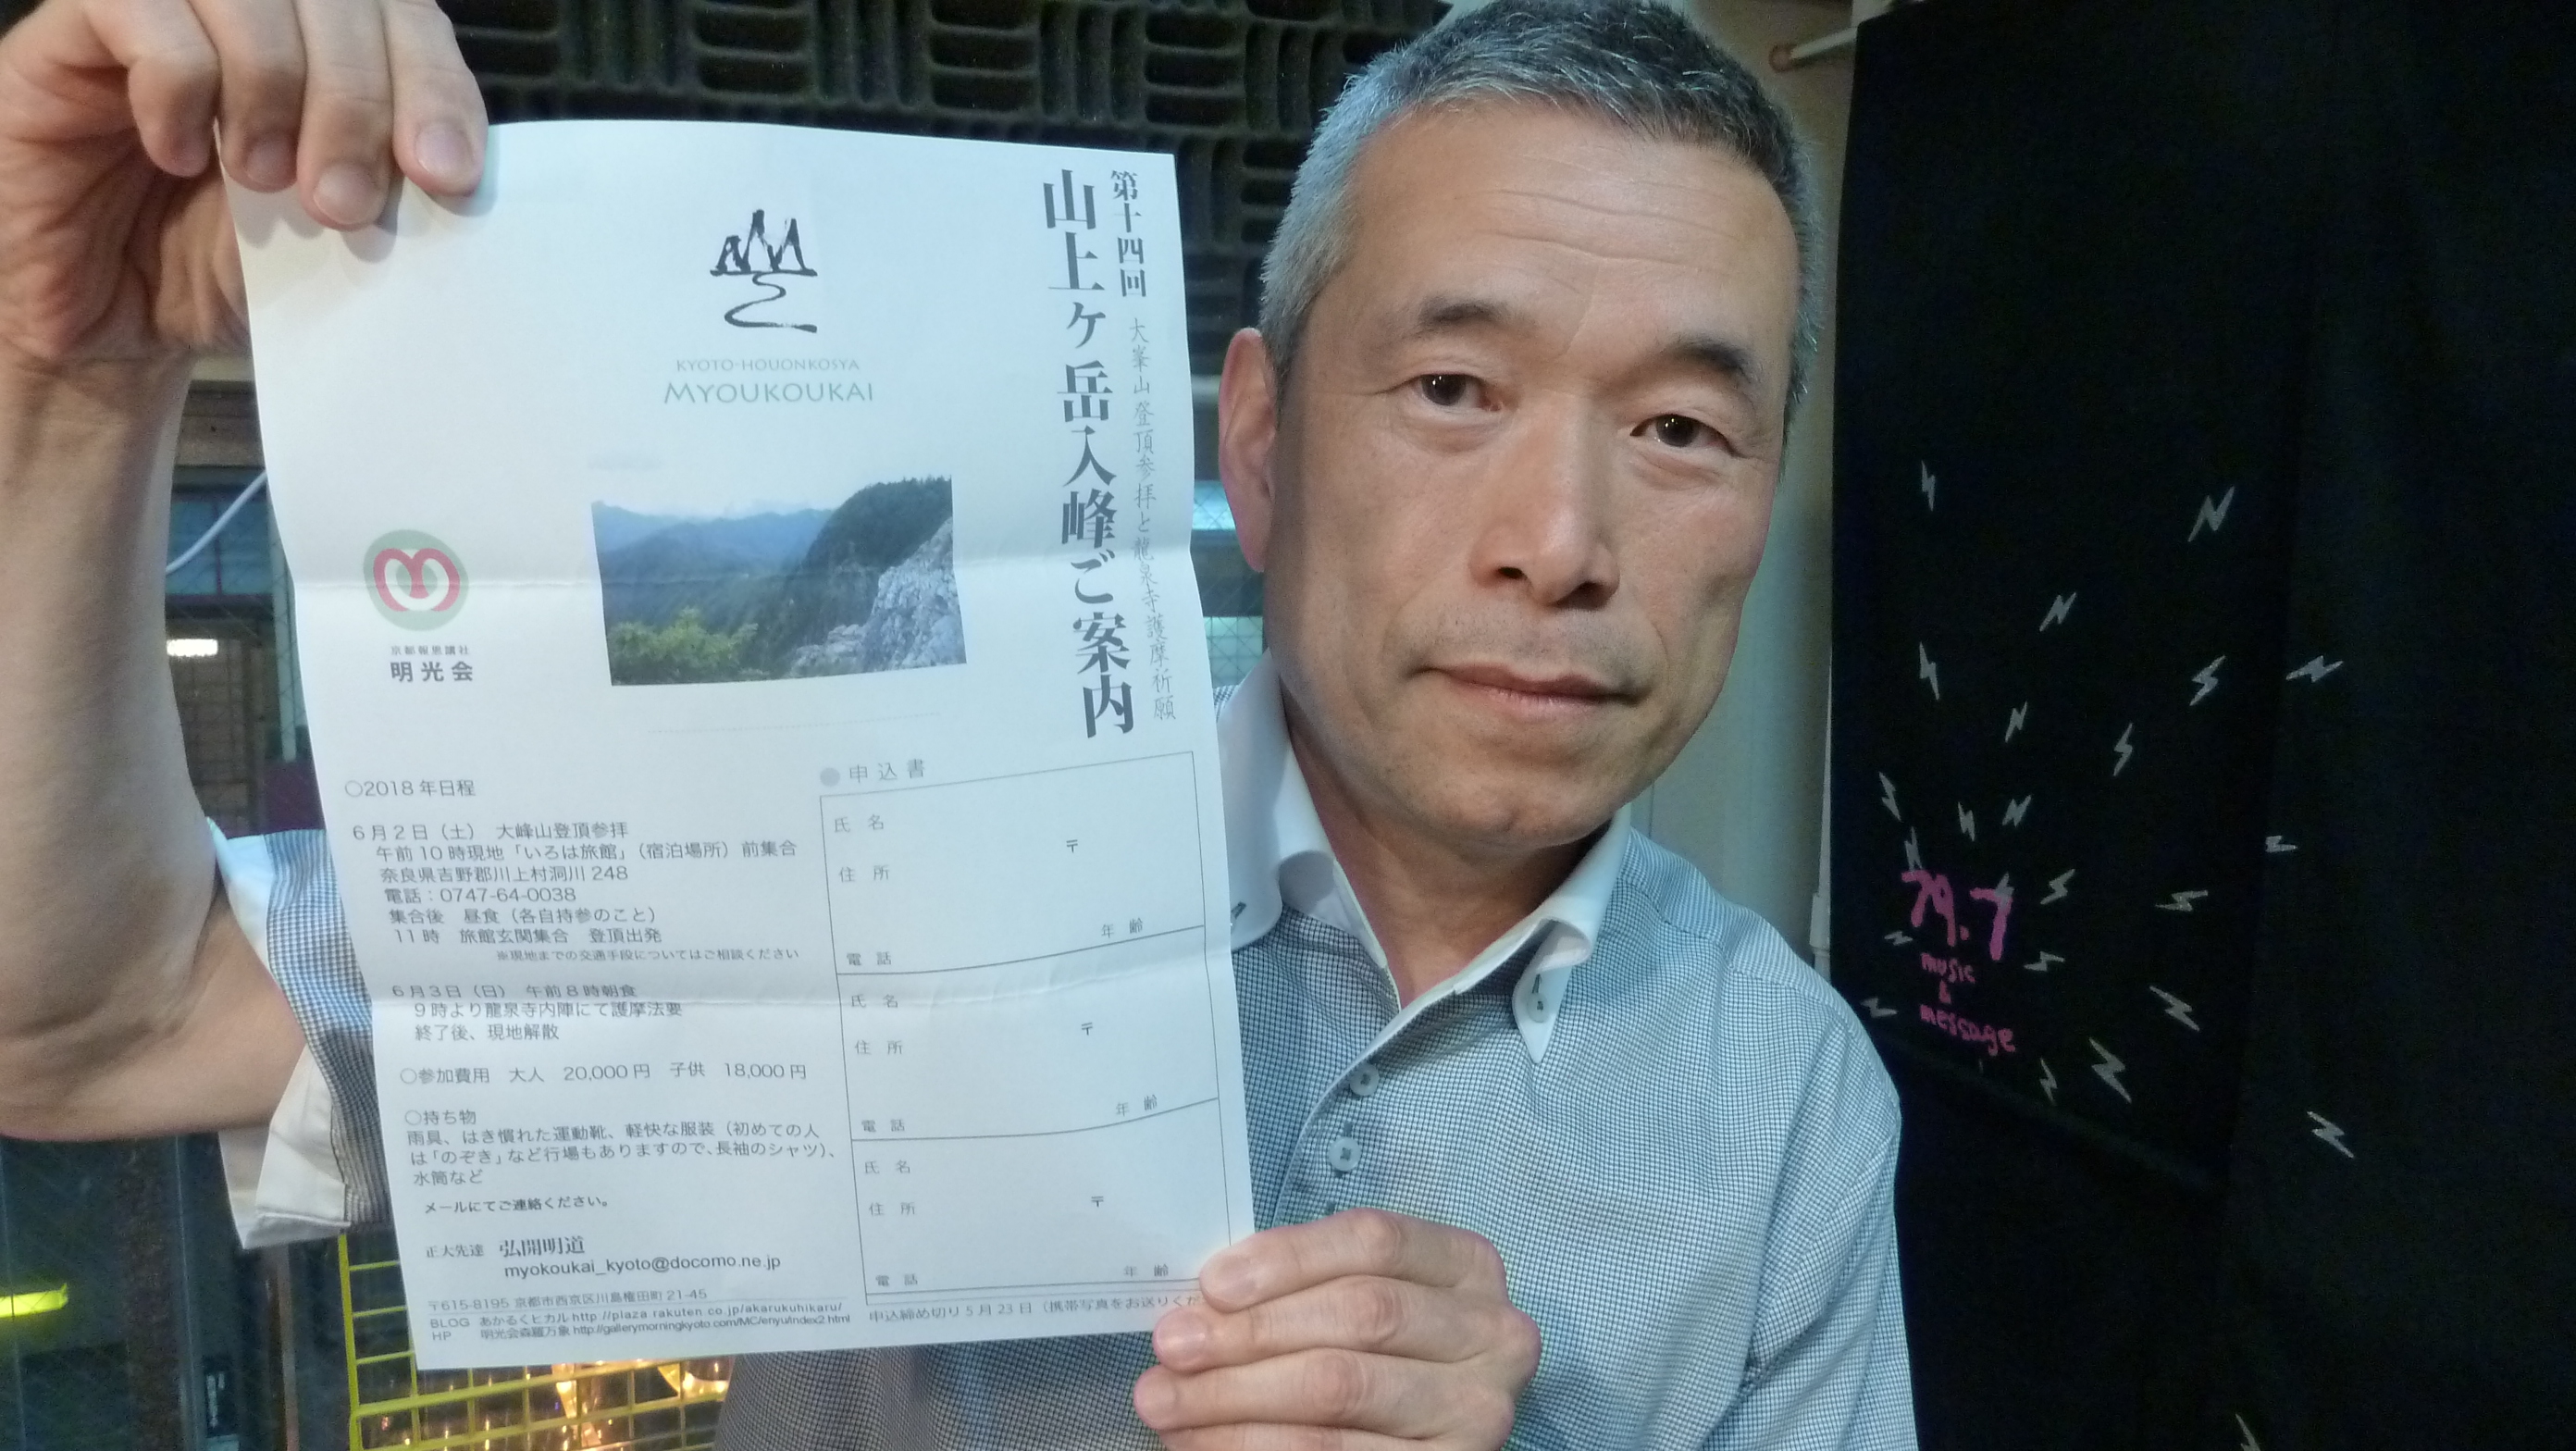 第十四回
大峯山登頂参拝と龍泉寺護摩祈願
山上ヶ岳入峰ご案内
KYOTO-HOUONKOSYA
MYOUKOUKAI
京都報恩講社
明光会
○2018年日程
6月2日（土）　大峰山登頂参拝
午前10時現地「いろは旅館」（宿泊場所）前集合
奈良県吉野郡川上村洞川248
電話：0747-64-0038
集合後　昼食（各自持参のこと）
11時　旅館玄関集合　登頂出発
※現地までの交通手段についてはご相談ください
6月3日（日）　午前8時朝食
9時より龍泉寺内陣にて護摩法要
終了後、現地解散
○参加費用　大人　20,000円　子供　18,000円
○持ち物
雨具、はき慣れた運動靴、軽快な服装（初めての人
は「のぞき」など行場もありますので、長袖のシャツ）、
水筒など
メールにてご連絡ください。
正大先達　弘開明道
myokoukai_kyoto@docomo.ne.jp
〒615-8195 京都市西京区川島権田町21-45
BLOG　あかるくヒカル http://plaza.rakuten.co.jp/akarukuhikaru/
HP　明光会森羅万象 http://gallerymorningkyoto.com/MC/enyu/index2.html
●申込書
氏名
〒
住所
年齢
電話
氏名
〒
住所
年齢
電話
氏名
〒
住所
年齢
電話
申込締め切り5月23日（携帯写真をお送りくだ
79.7
music
&
message